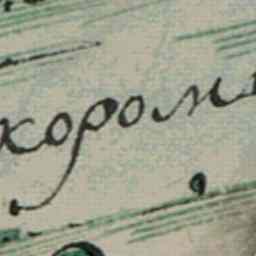 хором